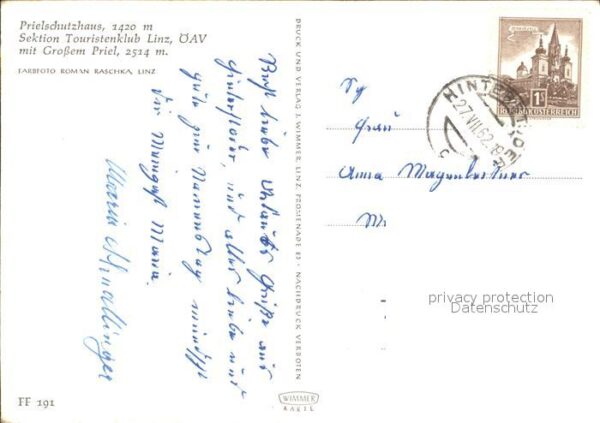 Prielschutzhaus, 1420 m
Sektion Touristenklub Linz, ÖAV
mit Großem Priel, 2514 m.
FARBFOTO ROMAN RASCHKA, LINZ
liebe Urlaubs Grüße aus
Hinterstoder, und alles liebe und
gute zum Namenstag wünscht
Maria
Maria
DRUCK UND VERLAG J. WIMMER, LINZ, PROMENADE 23 · NACHDRUCK VERBOTEN
1S
REPUBLIK ÖSTERREICH
HINTERSTODER
27.VII.62
Frau
Anna
privacy protection
Datenschutz
FF 191
WIMMER
KARTE